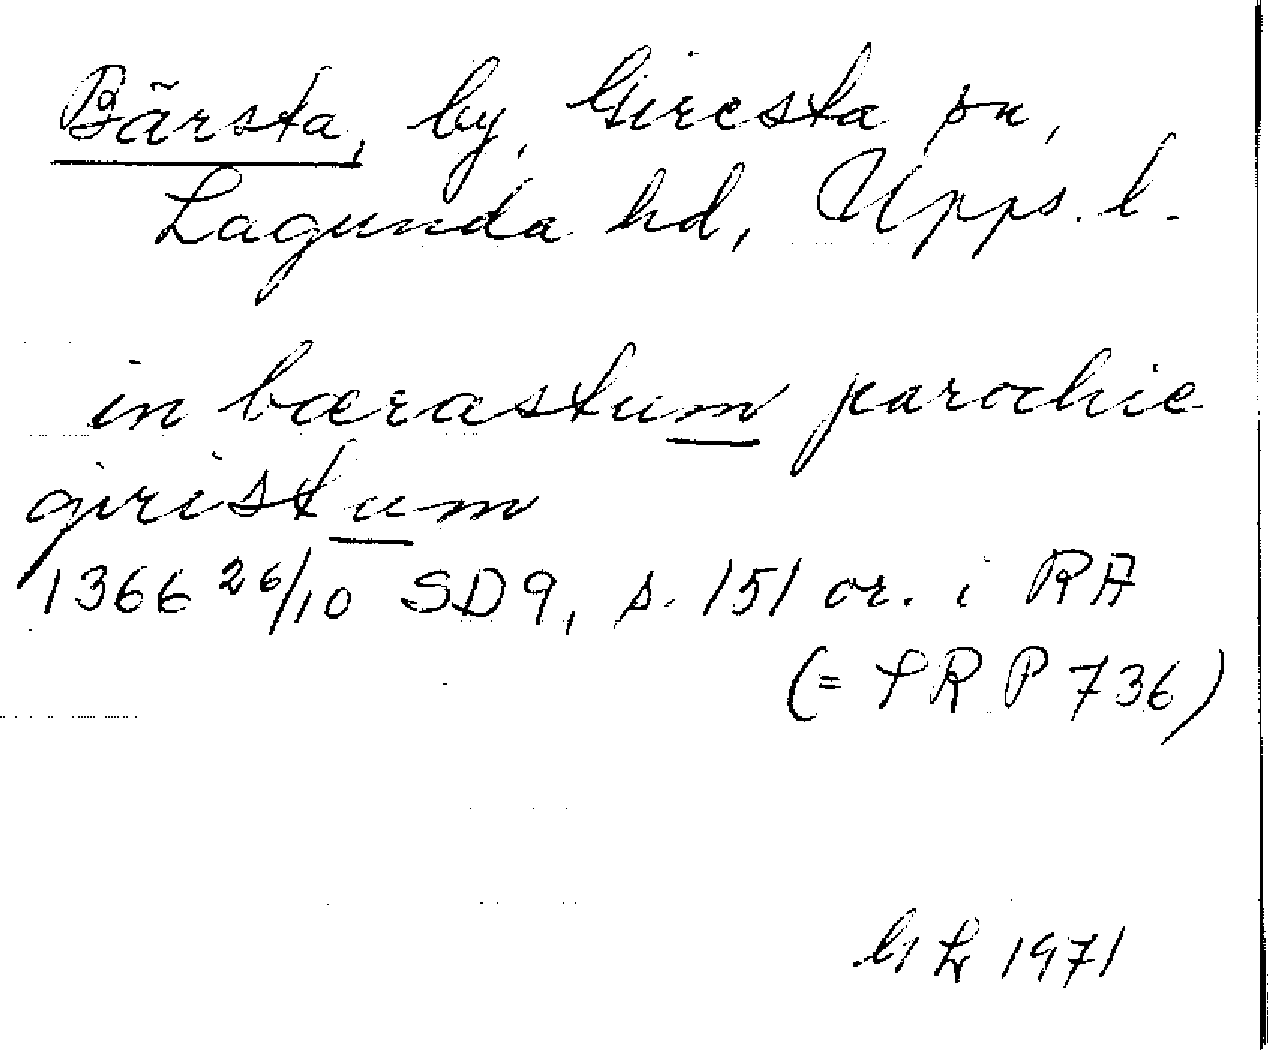 Bärsta, by, Giresta sn,
Lagunda hd, Upps. l.
in bærastum parochie
giristum
1366 26/10 SD9, s. 151 or. i RA
(= SRP 736)
GL 1971